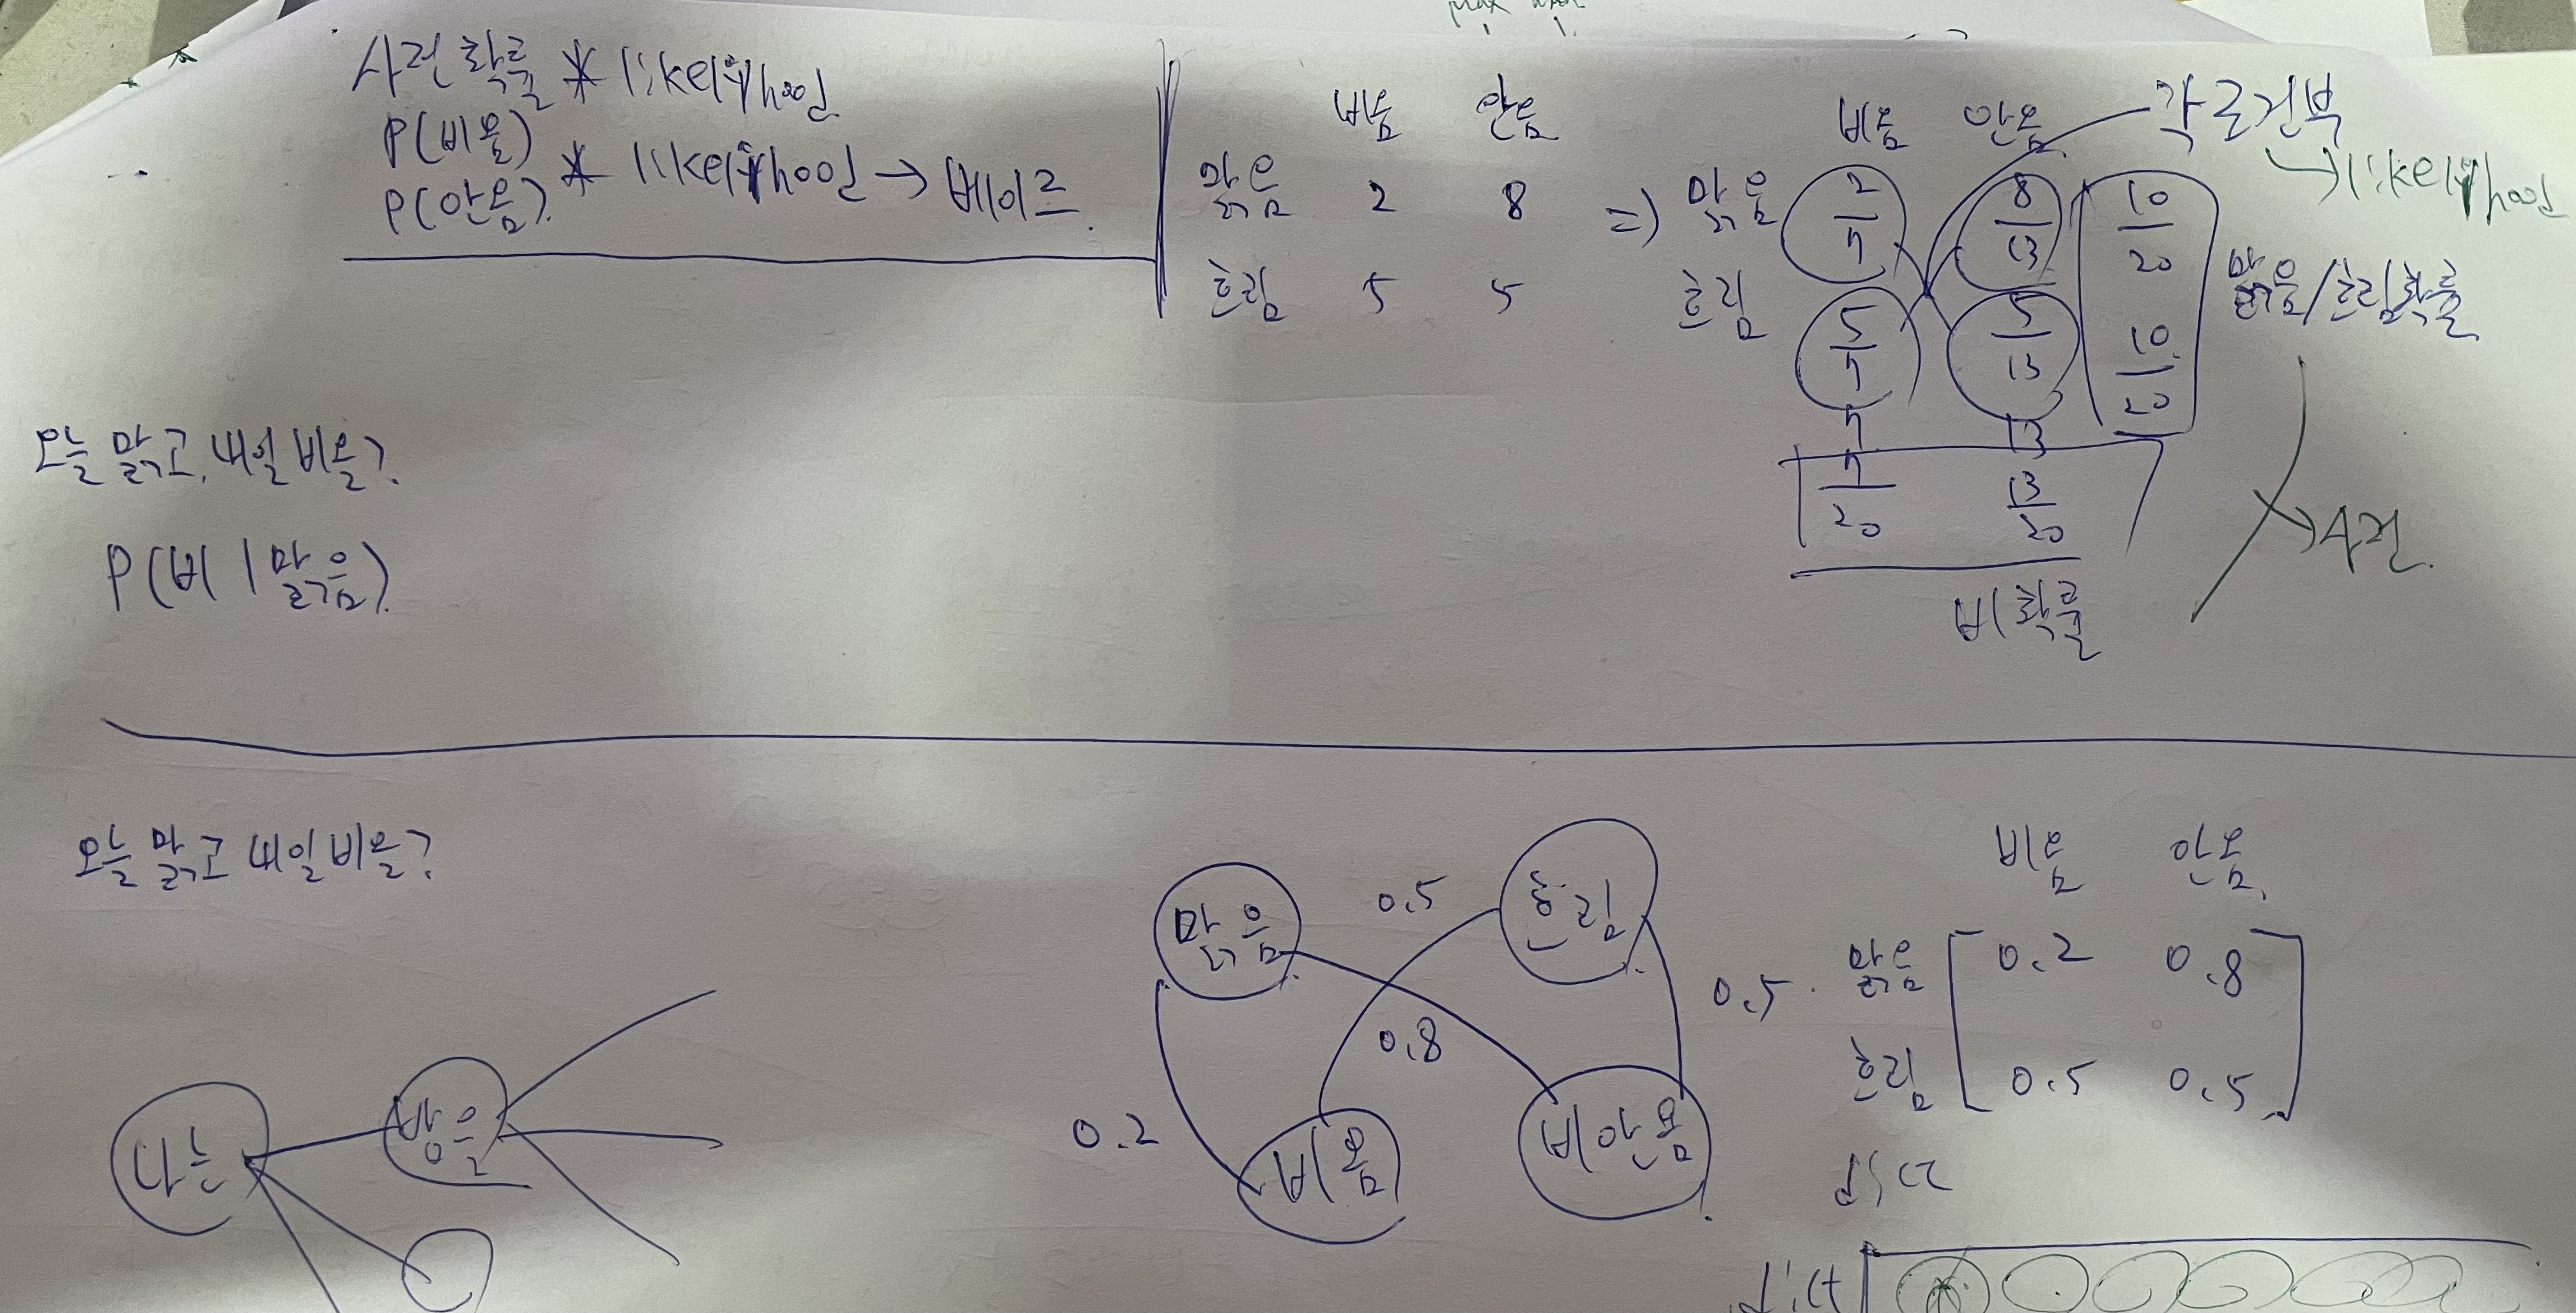 사전확률 * likelyhood
P(비옴)
P(안옴) * likelyhood → 베이즈
비옴 안옴
맑음 2 8
흐림 5 5
=)
비옴 안옴
각 조건부
→ likelyhood
맑음 2/7 8/13 10/20
흐림 5/7 5/13 10/20
맑음/흐림확률
7 13
7/20 13/20
→ 사전
비 확률
오늘 맑고, 내일 비올?
P(비 | 맑음)
오늘 맑고 내일 비올?
맑음 0.5 흐림
0.8 0.5
0.2 비옴 비안옴
비옴 안옴
맑음 0.2 0.8
흐림 0.5 0.5
dict
나는 밥을
dict